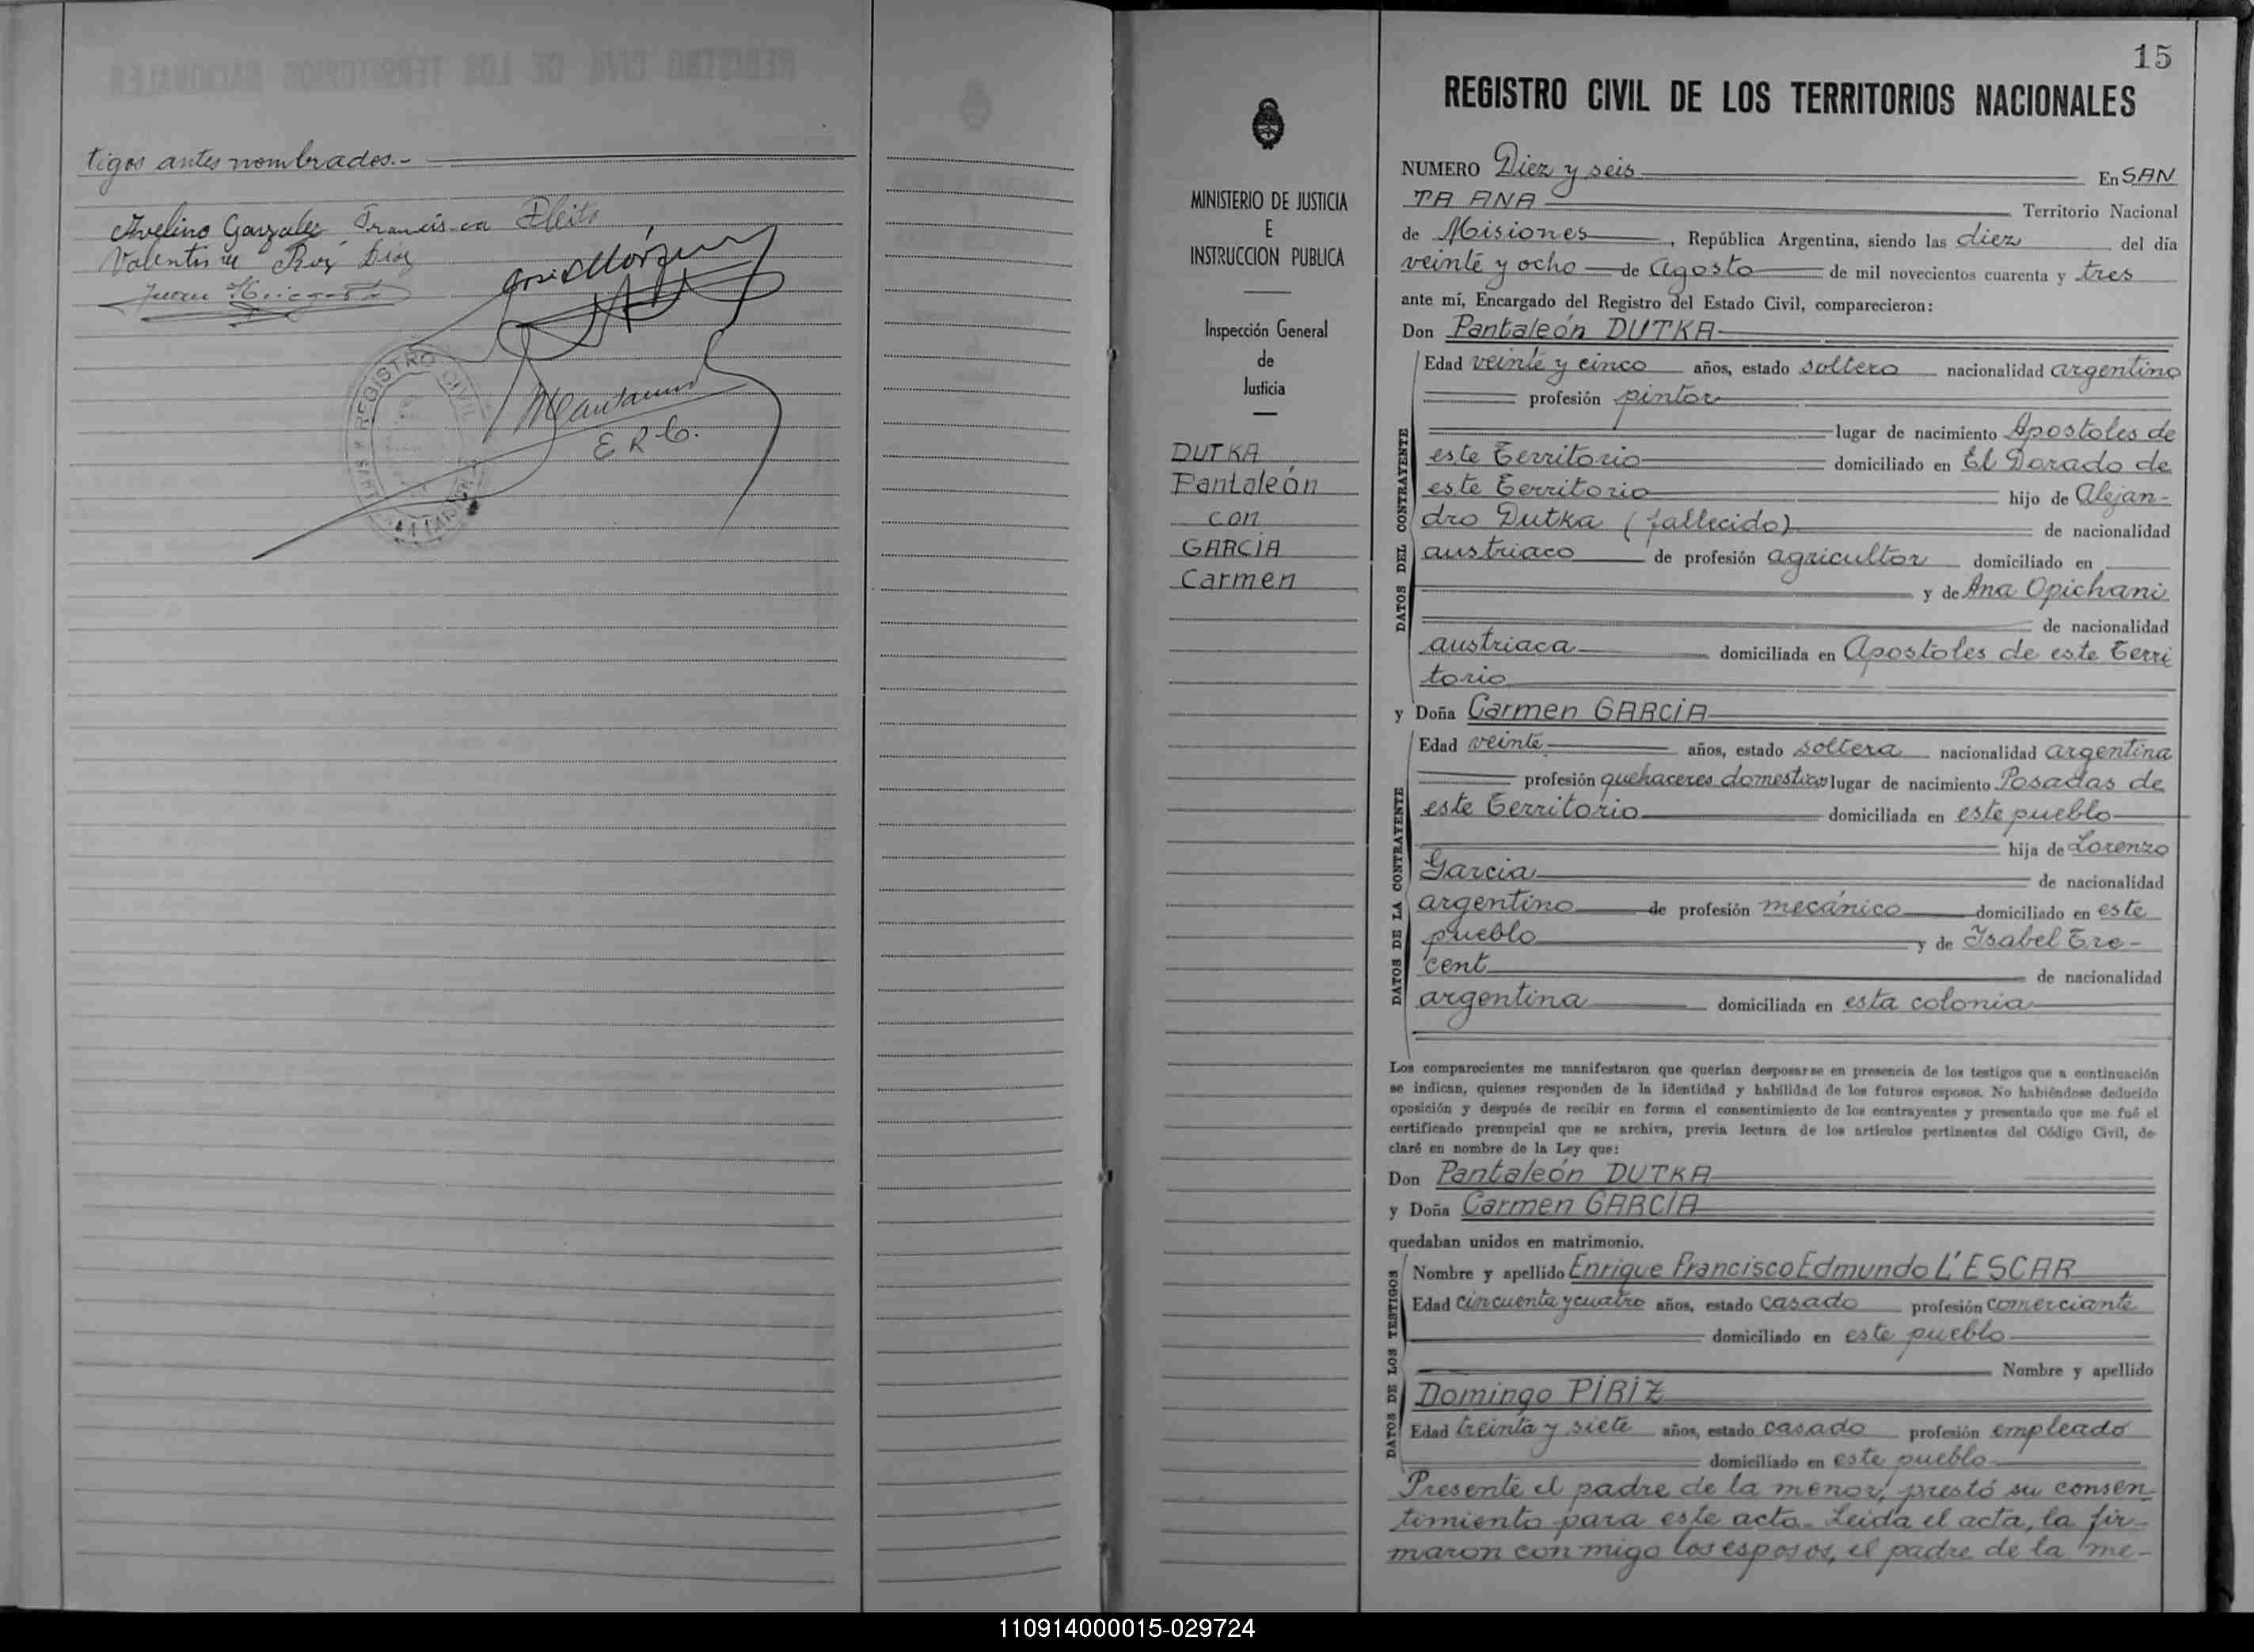 tigos antes nombrados.-
Avelino Gonzales Francisca
Valentin Diaz
Juan
E. R. C.
REGISTRO CIVIL
15
REGISTRO CIVIL DE LOS TERRITORIOS NACIONALES
MINISTERIO DE JUSTICIA
E
INSTRUCCION PUBLICA
Inspección General
de
Justicia
DUTKA
Pantaleón
con
GARCIA
Carmen
NUMERO Diez y seis En SAN
TA ANA Territorio Nacional
de Misiones, República Argentina, siendo las diez del día
veinte y ocho de Agosto de mil novecientos cuarenta y tres
ante mí, Encargado del Registro del Estado Civil, comparecieron:
Don Pantaleón DUTKA
DATOS DEL CONTRAYENTE
Edad veinte y cinco años, estado soltero nacionalidad argentino
profesión pintor
lugar de nacimiento Apostoles de
este Territorio domiciliado en El Dorado de
este Territorio hijo de Alejan-
dro Dutka (fallecido) de nacionalidad
austriaco de profesión agricultor domiciliado en
y de Ana Opichani
de nacionalidad
austriaca domiciliada en Apostoles de este Terri
torio
y Doña Carmen GARCIA
DATOS DE LA CONTRAYENTE
Edad veinte años, estado soltera nacionalidad argentina
profesión quehaceres domesticos lugar de nacimiento Posadas de
este Territorio domiciliada en este pueblo
hija de Lorenzo
Garcia de nacionalidad
argentino de profesión mecánico domiciliado en este
pueblo y de Isabel Tre-
cent de nacionalidad
argentina domiciliada en esta colonia
Los comparecientes me manifestaron que querían desposarse en presencia de los testigos que a continuación
se indican, quienes responden de la identidad y habilidad de los futuros esposos. No habiéndose deducido
oposición y después de recibir en forma el consentimiento de los contrayentes y presentado que me fué el
certificado prenupcial que se archiva, previa lectura de los artículos pertinentes del Código Civil, de-
claré en nombre de la Ley que:
Don Pantaleón DUTKA
y Doña Carmen GARCIA
quedaban unidos en matrimonio.
DATOS DE LOS TESTIGOS
Nombre y apellido Enrique Francisco Edmundo L'ESCAR
Edad cincuenta y cuatro años, estado casado profesión comerciante
domiciliado en este pueblo
Nombre y apellido
Domingo PIRIZ
Edad treinta y siete años, estado casado profesión empleado
domiciliado en este pueblo
Presente el padre de la menor, prestó su consen
timiento para este acto.- Leida el acta, la fir-
maron con migo los esposos, el padre de la me-
110914000015-029724